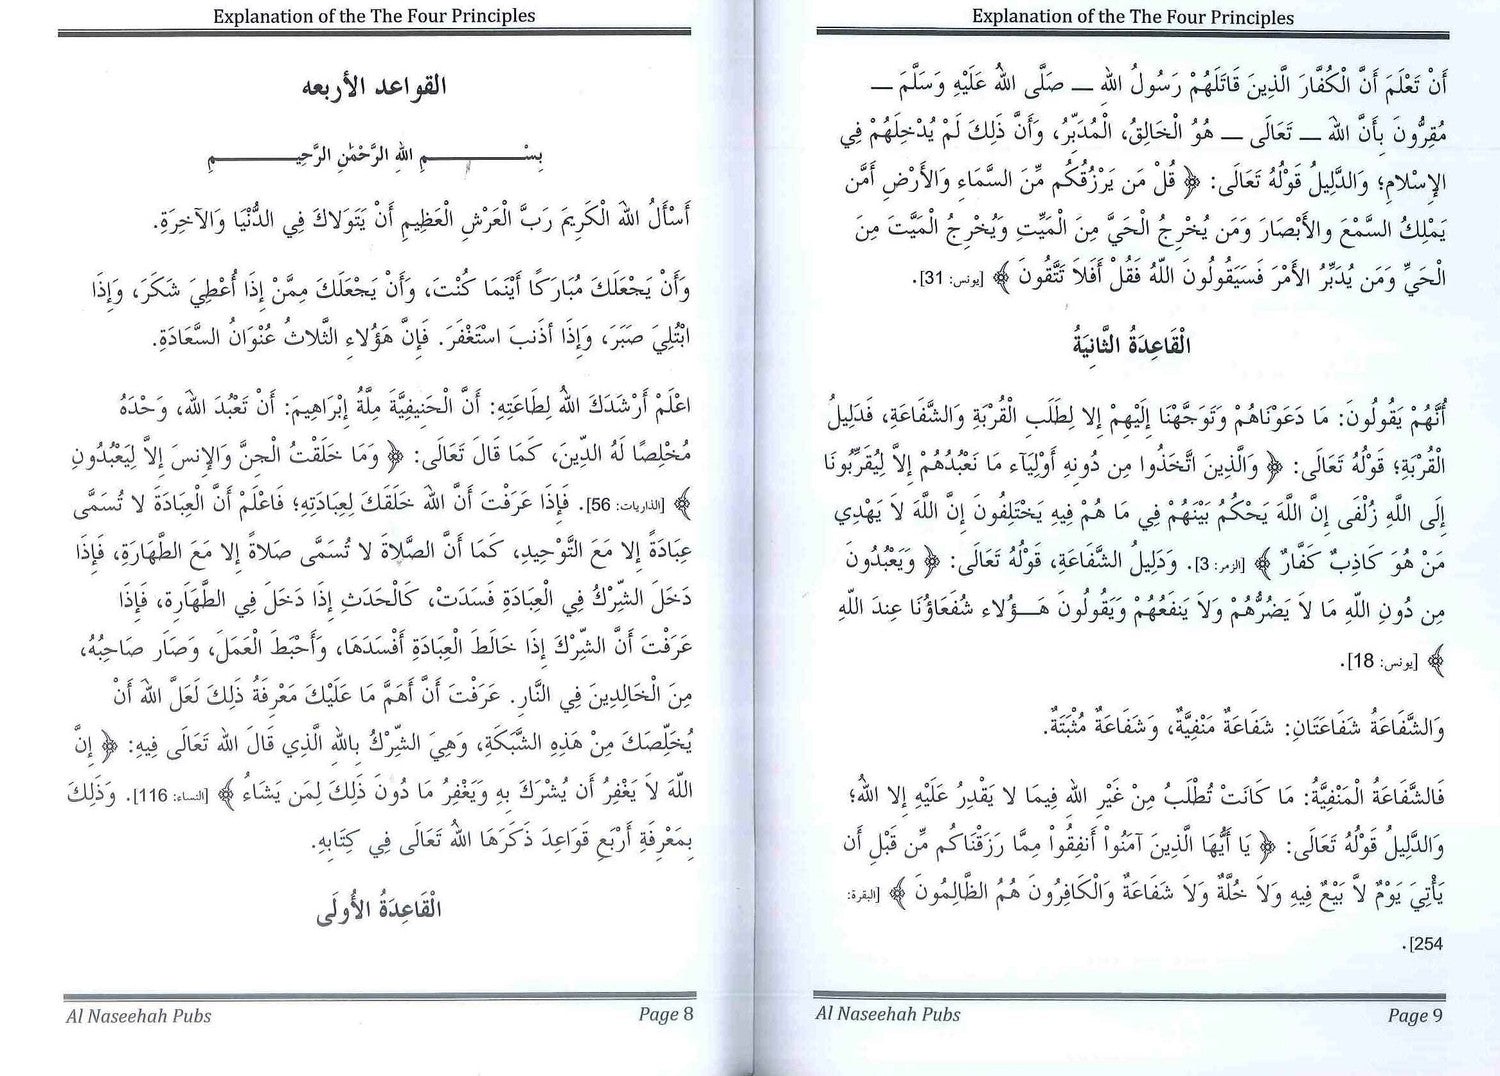 Explanation of the The Four Principles
القواعد الأربعه
بِسْــــــــمِ اللهِ الرَّحْمٰنِ الرَّحِيــــــــمِ
أَسْأَلُ اللهَ الْكَرِيمَ رَبَّ الْعَرْشِ الْعَظِيمِ أَنْ يَتَوَلاكَ فِي الدُّنْيَا وَالآخِرَةِ.
وَأَنْ يَجْعَلَكَ مُبَارَكًا أَيْنَمَا كُنْتَ، وَأَنْ يَجْعَلَكَ مِمَّنْ إِذَا أُعْطِيَ شَكَرَ، وَإِذَا
ابْتُلِيَ صَبَرَ، وَإِذَا أذَنبَ اسْتَغْفَرَ. فَإِنَّ هَؤُلاءِ الثَّلاثُ عُنْوَانُ السَّعَادَةِ.
اعْلَمْ أَرْشَدَكَ اللهُ لِطَاعَتِهِ: أَنَّ الْحَنِيفِيَّةَ مِلَّةُ إِبْرَاهِيمَ: أَنْ تَعْبُدَ اللهَ، وَحْدَهُ
مُخْلِصًا لَهُ الدِّينَ، كَمَا قَالَ تَعَالَى: ﴿ وَمَا خَلَقْتُ الْجِنَّ وَالإِنسَ إِلاَّ لِيَعْبُدُونِ
﴾ [الذاريات: 56]. فَإِذَا عَرَفْتَ أَنَّ اللهَ خَلَقَكَ لِعِبَادَتِهِ؛ فَاعْلَمْ أَنَّ الْعِبَادَةَ لا تُسَمَّى
عِبَادَةً إلا مَعَ التَّوْحِيدِ، كَمَا أَنَّ الصَّلاةَ لا تُسَمَّى صَلاةً إلا مَعَ الطَّهَارَةِ، فَإِذَا
دَخَلَ الشِّرْكُ فِي الْعِبَادَةِ فَسَدَتْ، كَالْحَدَثِ إِذَا دَخَلَ فِي الطَّهَارَةِ، فَإِذَا
عَرَفْتَ أَنَّ الشِّرْكَ إِذَا خَالَطَ الْعِبَادَةَ أَفْسَدَهَا، وَأَحْبَطَ الْعَمَلَ، وَصَار صَاحِبُهُ،
مِنَ الْخَالِدِينَ فِي النَّارِ. عَرَفْتَ أَنَّ أَهَمَّ مَا عَلَيْكَ مَعْرِفَةُ ذَلِكَ لَعَلَّ اللهَ أَنْ
يُخَلِّصَكَ مِنْ هَذِهِ الشَّبَكَةِ، وَهِيَ الشِّرْكُ بِاللهِ الَّذِي قَالَ الله تَعَالَى فِيهِ: ﴿ إِنَّ
اللّهَ لاَ يَغْفِرُ أَن يُشْرَكَ بِهِ وَيَغْفِرُ مَا دُونَ ذَلِكَ لِمَن يَشَاءُ ﴾ [النساء: 116]. وَذَلِكَ
بِمَعْرِفَةِ أَرْبَعِ قَوَاعِدَ ذَكَرَهَا اللهُ تَعَالَى فِي كِتَابِهِ.
الْقَاعِدَةُ الأُولَى
Al Naseehah Pubs
Page 8
Explanation of the The Four Principles
أَنْ تَعْلَمَ أَنَّ الْكُفَّارَ الَّذِينَ قَاتَلَهُمْ رَسُولُ اللهِ ــ صَلَّى اللهُ عَلَيْهِ وَسَلَّمَ ــ
مُقِرُّونَ بِأَنَّ اللهَ ــ تَعَالَى ــ هُوُ الْخَالِقُ، الْمُدَبِّرُ، وَأَنَّ ذَلِكَ لَمْ يُدْخِلَهُمْ فِي
الإِسْلامِ؛ وَالدَّلِيلُ قَوْلُهُ تَعَالَى: ﴿ قُلْ مَن يَرْزُقُكُم مِّنَ السَّمَاءِ وَالأَرْضِ أَمَّن
يَمْلِكُ السَّمْعَ والأَبْصَارَ وَمَن يُخْرِجُ الْحَيَّ مِنَ الْمَيِّتِ وَيُخْرِجُ الْمَيَّتَ مِنَ
الْحَيِّ وَمَن يُدَبِّرُ الأَمْرَ فَسَيَقُولُونَ اللّهُ فَقُلْ أَفَلاَ تَتَّقُونَ ﴾ [يونس: 31].
الْقَاعِدَةُ الثَّانِيَةُ
أنَّهُمْ يَقُولُونَ: مَا دَعَوْنَاهُمْ وَتَوَجَّهْنَا إِلَيْهِمْ إلا لِطَلَبِ الْقُرْبَةِ وَالشَّفَاعَةِ، فَدَلِيلُ
الْقُرْبَةِ؛ قَوْلُهُ تَعَالَى: ﴿ وَالَّذِينَ اتَّخَذُوا مِن دُونِهِ أَوْلِيَآء مَا نَعْبُدُهُمْ إِلاَّ لِيُقَرِّبُونَا
إِلَى اللَّهِ زُلْفَى إِنَّ اللَّهَ يَحْكُمُ بَيْنَهُمْ فِي مَا هُمْ فِيهِ يَخْتَلِفُونَ إِنَّ اللَّهَ لاَ يَهْدِي
مَنْ هُوَ كَاذِبٌ كَفَّارٌ ﴾ [الزمر: 3]. وَدَلِيلُ الشَّفَاعَةِ، قَوْلُهُ تَعَالَى: ﴿ وَيَعْبُدُونَ
مِن دُونِ اللّهِ مَا لاَ يَضُرُّهُمْ وَلاَ يَنفَعُهُمْ وَيَقُولُونَ هَـــؤُلاء شُفَعَاؤُنَا عِندَ اللّهِ
﴾ [يونس: 18].
وَالشَّفَاعَةُ شَفَاعَتَانِ: شَفَاعَةٌ مَنْفِيَّةٌ، وَشَفَاعَةٌ مُثْبَتَةٌ.
فَالشَّفَاعَةُ الْمَنْفِيَّةُ: مَا كَانَتْ تُطْلَبُ مِنْ غَيْرِ اللهِ فِيمَا لا يَقْدِرُ عَلَيْهِ إلا اللهُ؛
وَالدَّلِيلُ قَوْلُهُ تَعَالَى: ﴿ يَا أَيُّهَا الَّذِينَ آمَنُواْ أَنفِقُواْ مِمَّا رَزَقْنَاكُم مِّن قَبْلِ أَن
يَأْتِيَ يَوْمٌ لاَّ بَيْعٌ فِيهِ وَلاَ خُلَّةٌ وَلاَ شَفَاعَةٌ وَالْكَافِرُونَ هُمُ الظَّالِمُونَ ﴾ [البقرة:
254].
Al Naseehah Pubs
Page 9